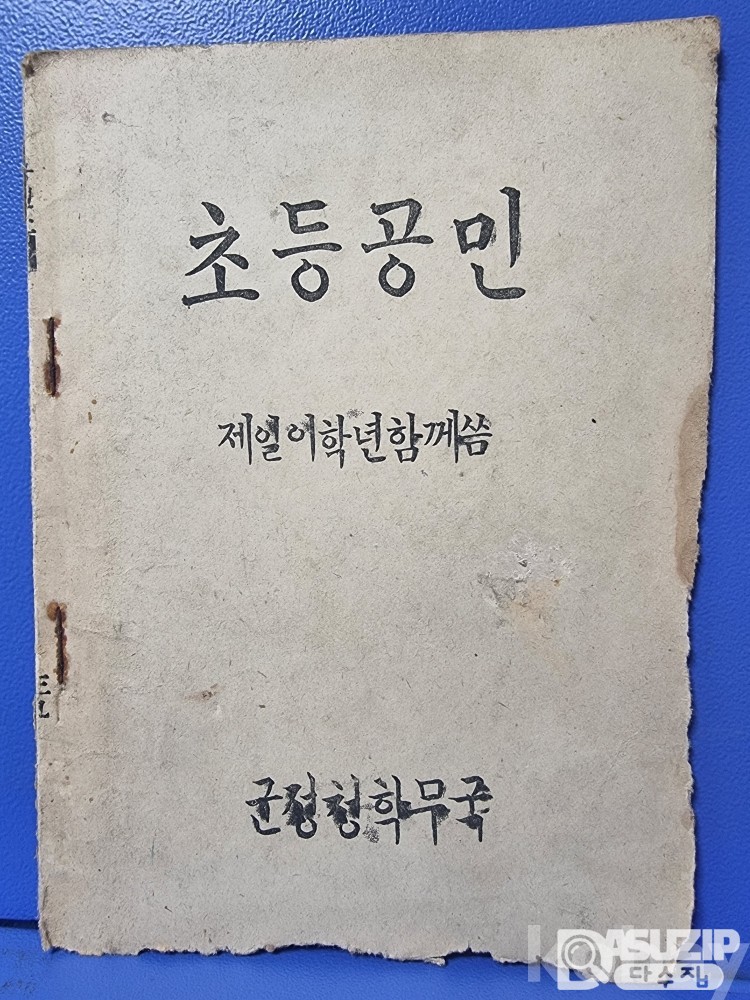 초등공민
제일이학년함께씀
군정청학무국
ASUZIP
다수집